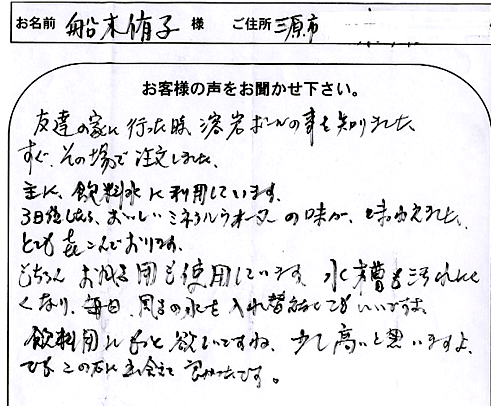 お名前 船木侑子 様 ご住所 三原市
お客様の声をお聞かせ下さい。
友達の家に行った時、溶岩ボールの事を知りました。
すぐ、その場で注文しました。
主に、飲料水に利用しています。
3日後したら、おいしいミネラルウォーターの味が、味わえました。
とても喜こんでおります。
もちろん お風呂用も使用しています。水槽も汚れにく
くなり、毎日、風呂の水を入れ替えなくてもいいですよ。
飲料用にもっと欲しいですね、少し高いと思いますよ。
でもこの石に出会えて良かったです。